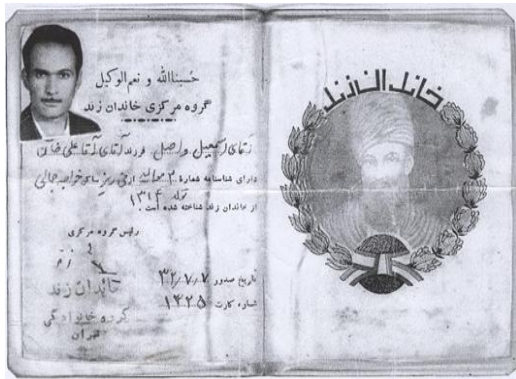 حسبنا الله و نعم الوکیل
گروه مرکزی خاندان زند
آقای اسمعیل واصل فرزند آقای آقا علی خان
دارای شناسنامه شماره ۳
از خاندان زند شناخته شده است.
رئیس گروه مرکزی
خاندان زند
تهران
تاریخ صدور ۳۲/۷/۷
شماره کارت ۱۴۲۵
خاندان زند